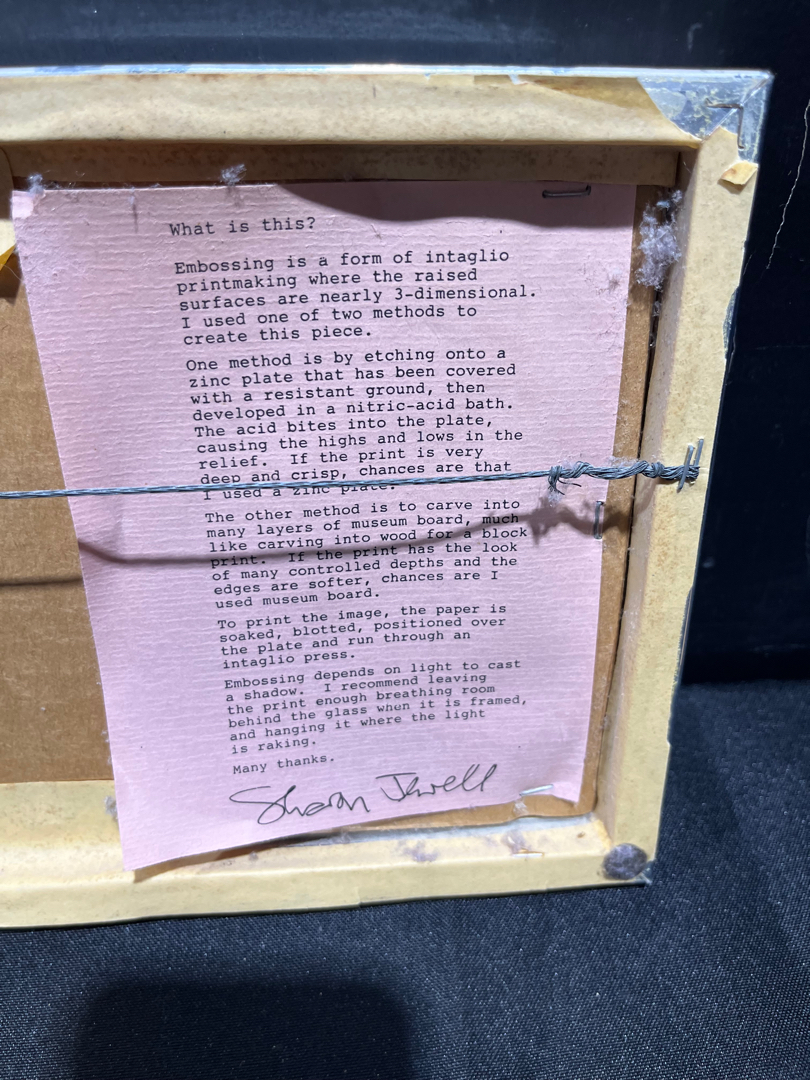 What is this?
Embossing is a form of intaglio
printmaking where the raised
surfaces are nearly 3-dimensional.
I used one of two methods to
create this piece.
One method is by etching onto a
zinc plate that has been covered
with a resistant ground, then
developed in a nitric-acid bath.
The acid bites into the plate,
causing the highs and lows in the
relief. If the print is very
deep and crisp, chances are that
I used a zinc plate.
The other method is to carve into
many layers of museum board, much
like carving into wood for a block
print. If the print has the look
of many controlled depths and the
edges are softer, chances are I
used museum board.
To print the image, the paper is
soaked, blotted, positioned over
the plate and run through an
intaglio press.
Embossing depends on light to cast
a shadow. I recommend leaving
the print enough breathing room
behind the glass when it is framed,
and hanging it where the light
is raking.
Many thanks.
Sharon Jewell